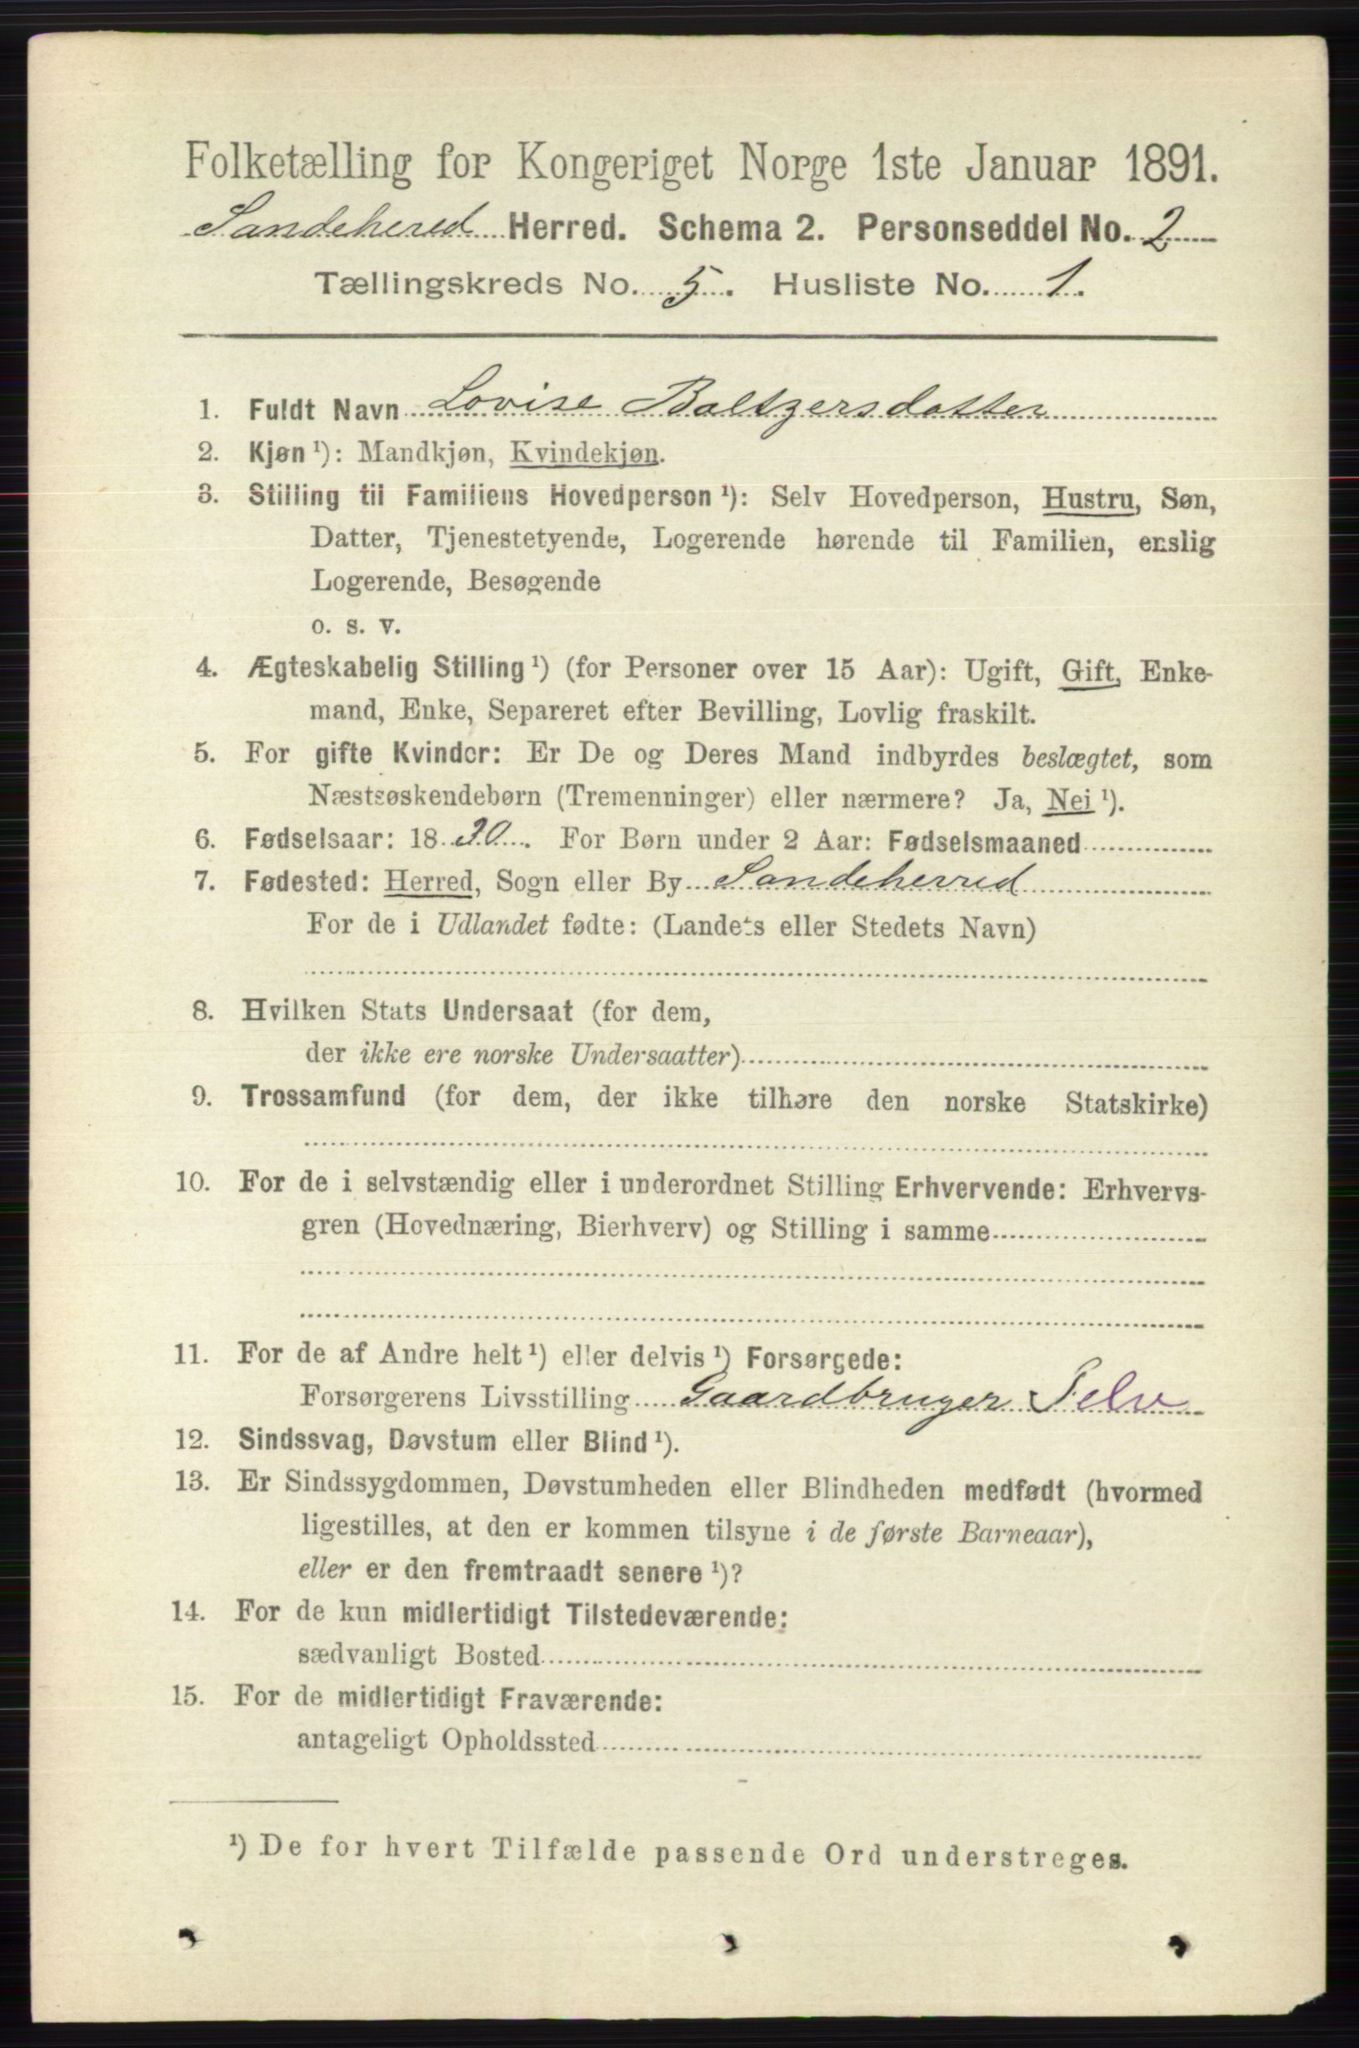 Folketælling for Kongeriget Norge 1ste Januar 1891.
Sandehered Herred. Schema 2. Personseddel No. 2
Tællingskreds No. 5. Husliste No. 1.
1. Fuldt Navn Lovise Baltzersdatter
2. Kjøn¹): Mandkjøn, Kvindekjøn.
3. Stilling til Familiens Hovedperson¹): Selv Hovedperson, Hustru, Søn,
Datter, Tjenestetyende, Logerende hørende til Familien, enslig
Logerende, Besøgende
o. s. v.
4. Ægteskabelig Stilling¹) (for Personer over 15 Aar): Ugift, Gift, Enke-
mand, Enke, Separeret efter Bevilling, Lovlig fraskilt.
5. For gifte Kvinder: Er De og Deres Mand indbyrdes beslægtet, som
Næstsøskendebørn (Tremenninger) eller nærmere? Ja, Nei¹).
6. Fødselsaar: 18 30. For Børn under 2 Aar: Fødselsmaaned
7. Fødested: Herred, Sogn eller By Sandeherred
For de i Udlandet fødte: (Landets eller Stedets Navn)
8. Hvilken Stats Undersaat (for dem,
der ikke ere norske Undersaatter)
9. Trossamfund (for dem, der ikke tilhøre den norske Statskirke)
10. For de i selvstændig eller i underordnet Stilling Erhvervende: Erhvervs-
gren (Hovednæring, Bierhverv) og Stilling i samme
11. For de af Andre helt¹) eller delvis¹) Forsørgede:
Forsørgerens Livsstilling Gaardbruger Selv
12. Sindssvag, Døvstum eller Blind¹).
13. Er Sindssygdommen, Døvstumheden eller Blindheden medfødt (hvormed
ligestilles, at den er kommen tilsyne i de første Barneaar),
eller er den fremtraadt senere¹)?
14. For de kun midlertidigt Tilstedeværende:
sædvanligt Bosted
15. For de midlertidigt Fraværende:
antageligt Opholdssted
¹) De for hvert Tilfælde passende Ord understreges.